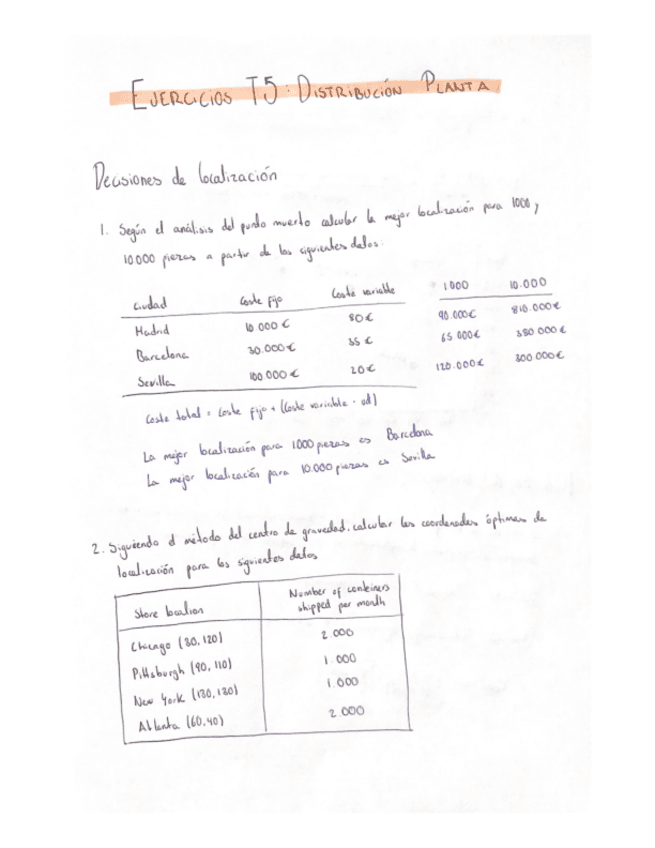 EJERCICIOS T5: DISTRIBUCIÓN PLANTA
Decisiones de localización
1. Según el análisis del punto muerto calcular la mejor localización para 1000 y
10.000 piezas a partir de los siguientes datos:
Ciudad Coste fijo Coste variable 1000 10.000
Madrid 10.000€ 80€ 90.000€ 810.000€
Barcelona 30.000€ 35€ 65.000€ 380.000€
Sevilla 100.000€ 20€ 120.000€ 300.000€
Coste total = Coste fijo + (Coste variable · ud)
La mejor localización para 1000 piezas es Barcelona
La mejor localización para 10.000 piezas es Sevilla
2. Siguiendo el método del centro de gravedad, calcular las coordenadas óptimas de
localización para los siguientes datos
Store location Number of containers
shipped per month
Chicago (30,120) 2.000
Pittsburgh (90,110) 1.000
New York (130,130) 1.000
Atlanta (60,40) 2.000